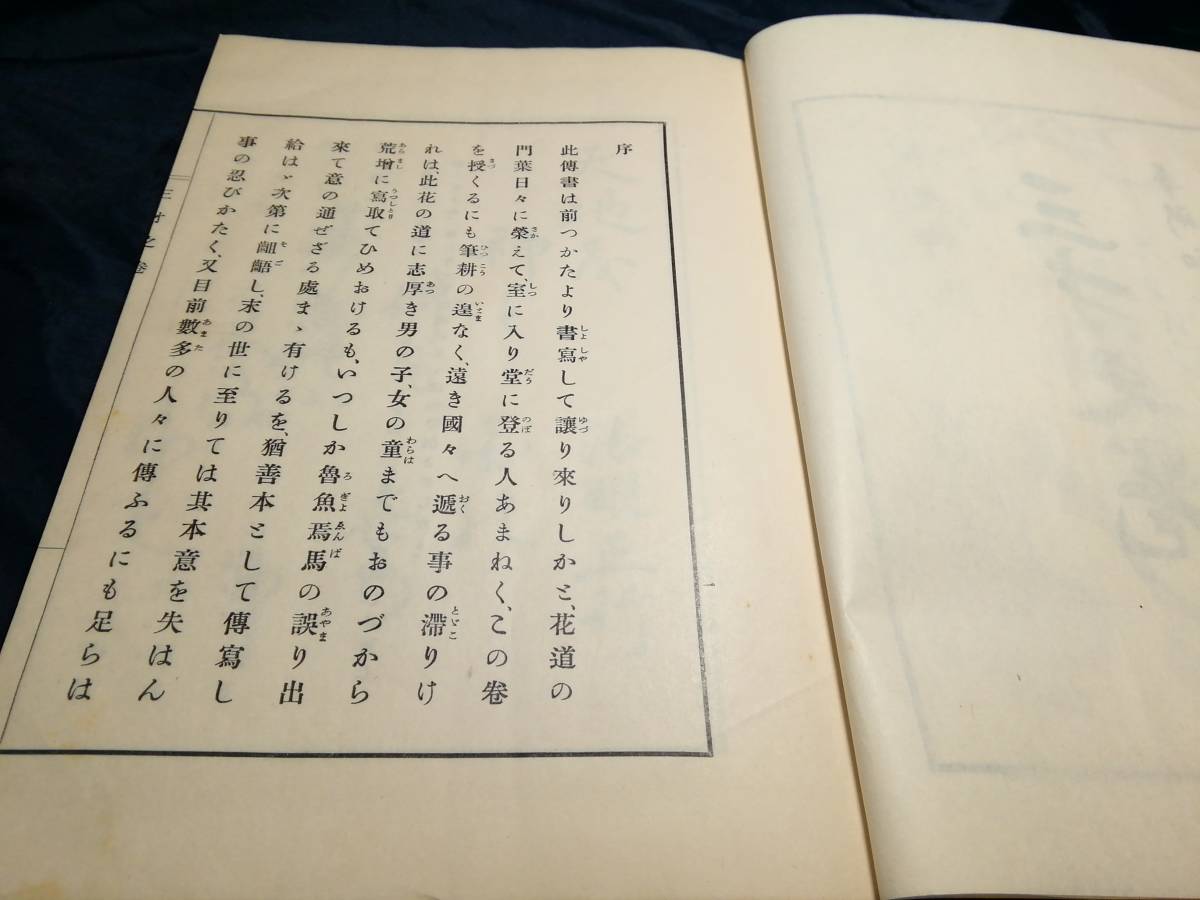 序
此傳書は前つかたより書寫して讓り來りしかと、花道の
門葉日々に榮えて、室に入り堂に登る人あまねく、この卷
を授くるにも筆耕の遑なく、遠き國々へ遞る事の滯りけ
れは、此花の道に志厚き男の子、女の童までもおのづから
荒增に寫取てひめおけるも、いつしか魯魚焉馬の誤り出
來て意の通ぜざる處まゝ有けるを、猶善本として傳寫し
給はゞ次第に齟齬し、末の世に至りては其本意を失はん
事の忍びかたく、又目前數多の人々に傳ふるにも足らは
三才之卷
一